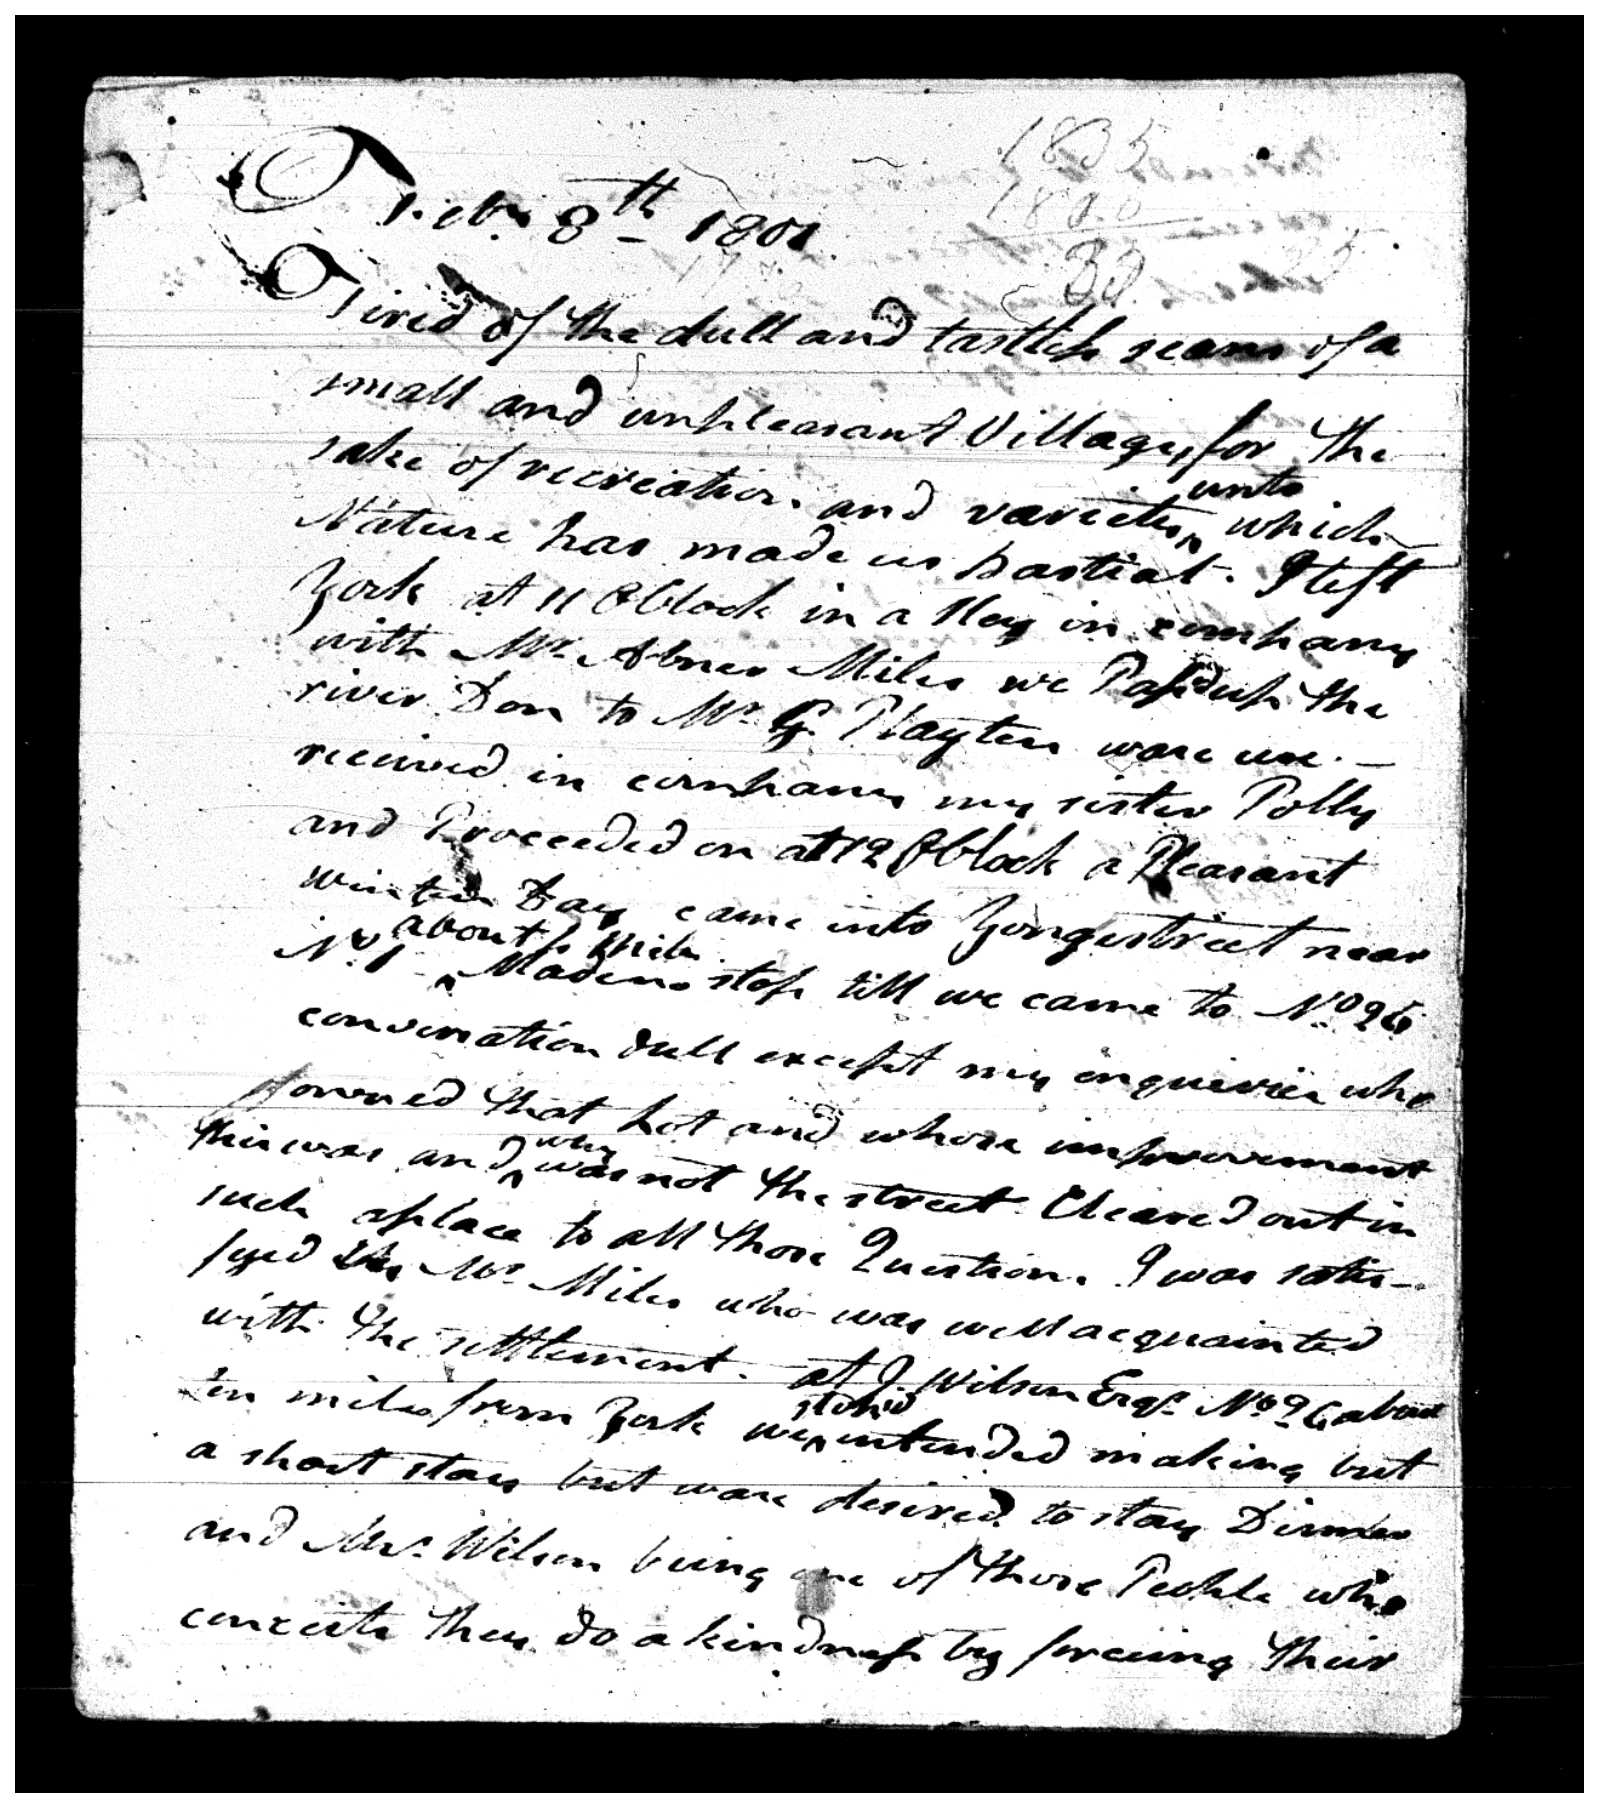 1835
1800
Feby 8th 1801
35
Tired of the dull and tastless seans of a
small and unpleasant Village, for the
sake of recreation and varietes, unto which
Nature has made us partial. I left
York at 11 OClock in a Slay in company
with Mr. Abner Miles we Passd up the
river Don to Mr. G. Playters ware we
received in company my sister Polly
and Proceeded on at 12 OClock a Pleasant
winters Day came into Yongestreet near
No. 1 about 2 Miles
Made no stop till we came to No 26
conversation dull except my inquiries who
owned that Lot and whose improvement
this was and why was not the street Cleared out in
such a place to all those Questions I was satis-
fyed by Mr. Miles who was well acquainted
with the settlement. at J Wilson Esqr. No. 26 about
ten miles from York we stopd intended making but
a short stay but ware desired to stay Dinner
and Mrs. Wilson being one of those People who
conceits they do a kindness by forceing their